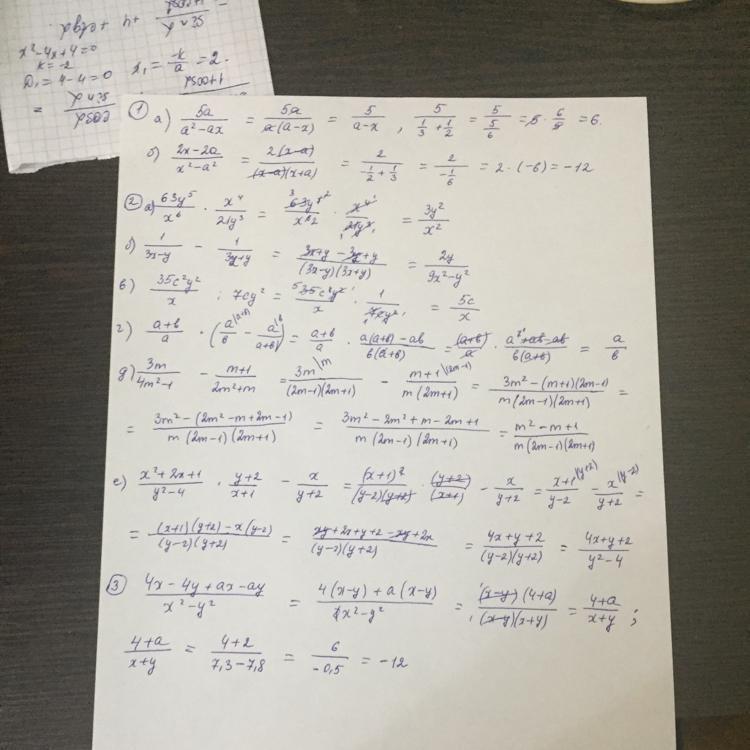 x²-4x+4=0
k=-2
D₁ = 4-4=0 x₁ = -k/a = 2.
① а) 5a/(a²-ax) = 5a/(a(a-x)) = 5/(a-x) , 5/(1/3+1/2) = 5/(5/6) = 5·6/5 = 6.
б) (2x-2a)/(x²-a²) = 2(x-a)/((x-a)(x+a)) = 2/(-1/2+1/3) = 2/(-1/6) = 2·(-6) = -12
② а) 63y⁵/x⁶ · x⁴/21y³ = 63y⁵²/x⁶² · x⁴/21y³ = 3y²/x²
б) 1/(3x-y) - 1/(3x+y) = (3x+y-3x+y)/((3x-y)(3x+y)) = 2y/(9x²-y²)
в) 35c²y²/x : 7cy² = 35c²y²/x · 1/7cy² = 5c/x
г) (a+b)/a · (a/b - a/(a+b)) = (a+b)/a · (a(a+b)-ab)/(b(a+b)) = (a+b)/a · (a²+ab-ab)/(b(a+b)) = a/b
д) 3m/(4m²-1) - (m+1)/(2m²+m) = 3m\m/((2m-1)(2m+1)) - (m+1\(2m-1))/(m(2m+1)) = (3m²-(m+1)(2m-1))/(m(2m-1)(2m+1)) =
= (3m²-(2m²-m+2m-1))/(m(2m-1)(2m+1)) = (3m²-2m²+m-2m+1)/(m(2m-1)(2m+1)) = (m²-m+1)/(m(2m-1)(2m+1))
е) (x²+2x+1)/(y²-4) · (y+2)/(x+1) - x/(y+2) = (x+1)²/((y-2)(y+2)) · (y+2)/(x+1) - x/(y+2) = (x+1\(y+2))/(y-2) - x\(y-2)/(y+2) =
= ((x+1)(y+2)-x(y-2))/((y-2)(y+2)) = (xy+2x+y+2-xy+2x)/((y-2)(y+2)) = (4x+y+2)/((y-2)(y+2)) = (4x+y+2)/(y²-4)
③ (4x-4y+ax-ay)/(x²-y²) = (4(x-y)+a(x-y))/(x²-y²) = (x-y)(4+a)/((x-y)(x+y)) = (4+a)/(x+y) ;
(4+a)/(x+y) = (4+2)/(7,3-7,8) = 6/(-0,5) = -12